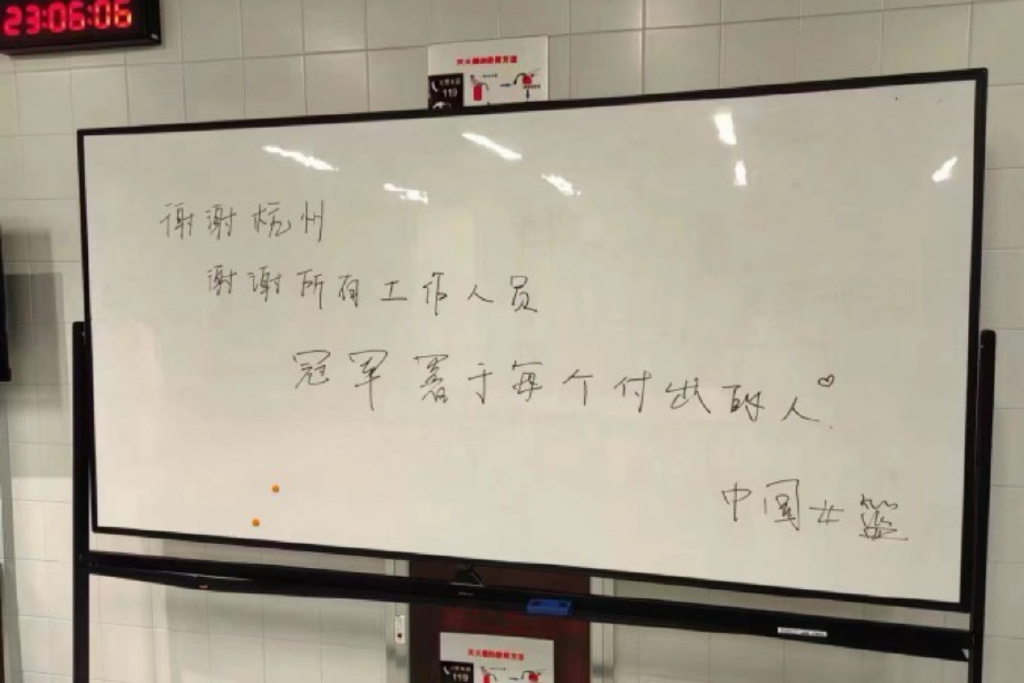 23:06:06
灭火器的使用方法
119
谢谢杭州
谢谢所有工作人员
冠军署于每个付出的人
中国女篮
灭火器的使用方法
119